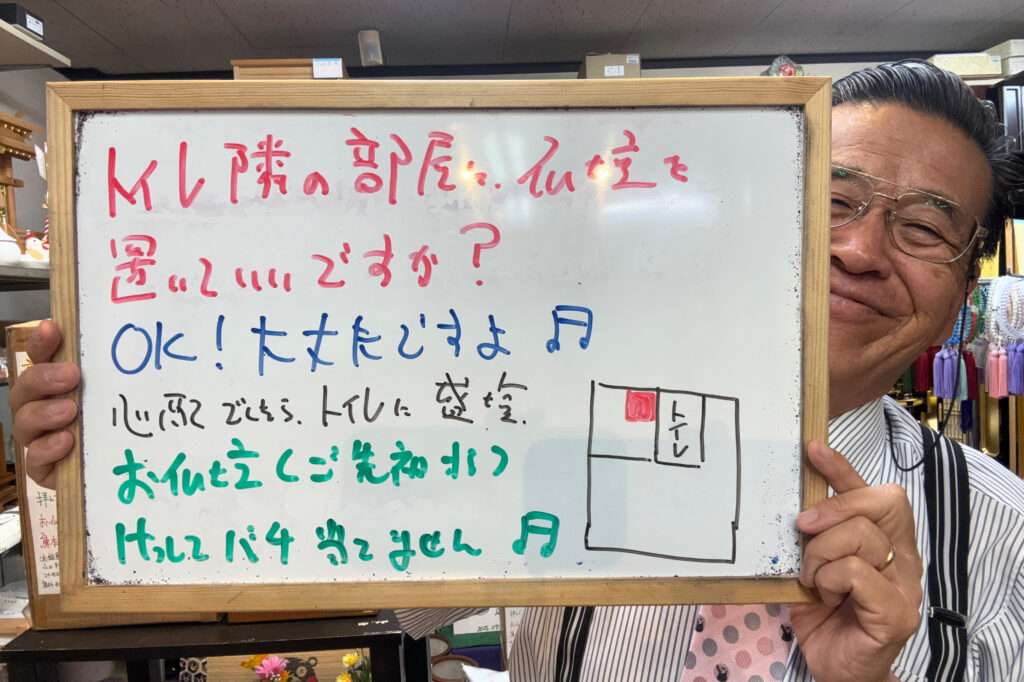 トイレ隣の部屋に、仏壇を
置いていいですか？
OK！大丈夫ですよ♬
心配でしたら、トイレに盛塩。
お仏壇（ご先祖様）
けっしてバチ当てません♬
トイレ